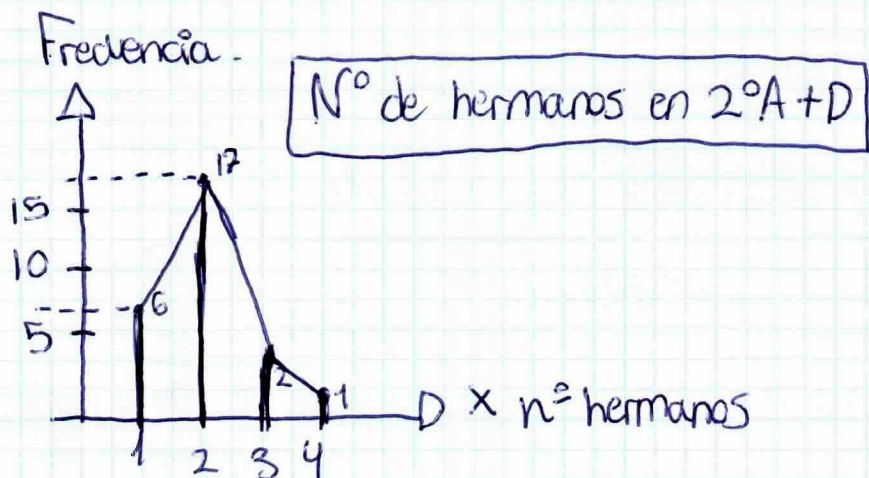 Frecuencia.
Nº de hermanos en 2ºA+D
17
15
10
6
5
2
1
x nº hermanos
1 2 3 4